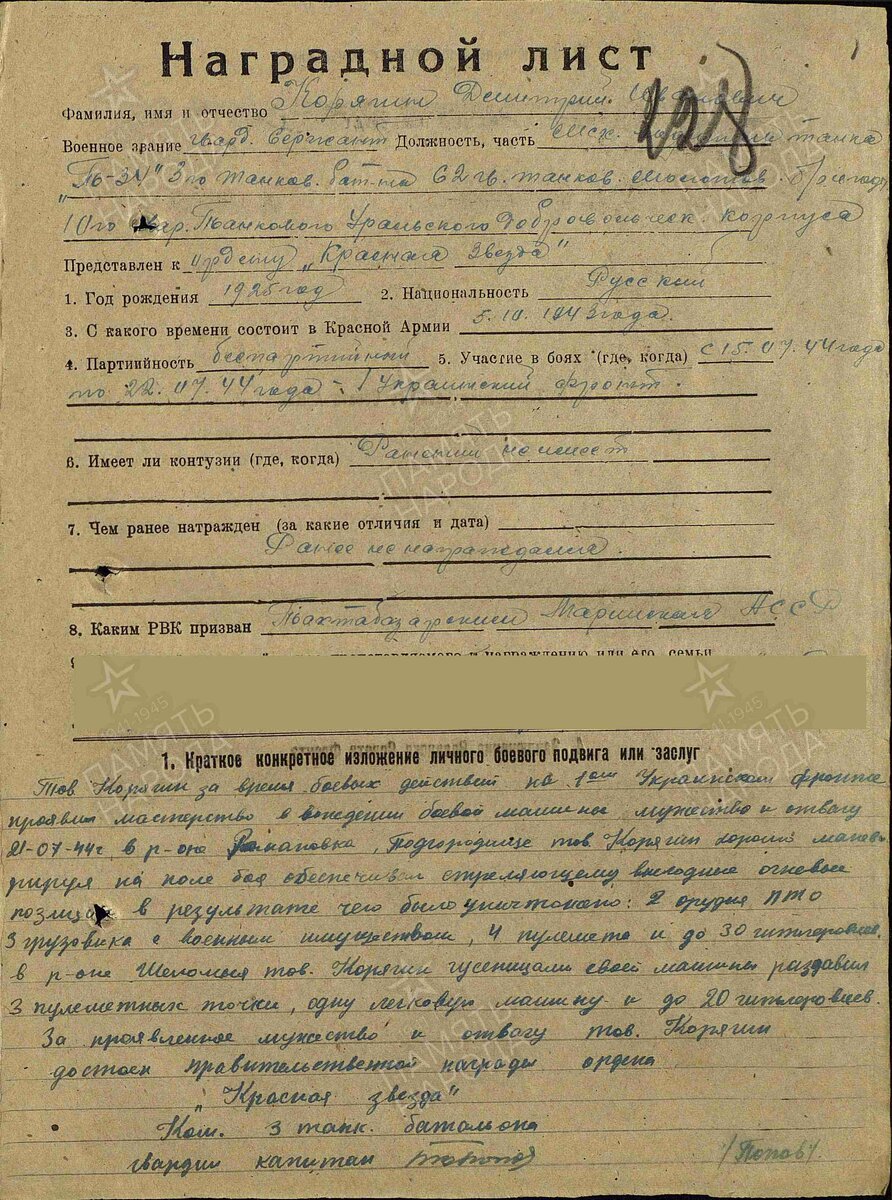 Наградной лист
228
Фамилия, имя и отчество Корягин Дмитрий Иванович
Военное звание Гвард. Сержант Должность, часть Мех. танка
"Т-34" 3го танков. бат-на 62 гв. танков. Молотов. бригады
10го Гвар. Танкового Уральского Добровольческ. корпуса
Представлен к ордену "Красная Звезда"
1. Год рождения 1925 год 2. Национальность Русский
3. С какого времени состоит в Красной Армии 5.10.1943 года.
4. Партийность беспартийный 5. Участие в боях (где, когда) с 15.07.44 года
по 22.07.44 года - 1 Украинский фронт.
6. Имеет ли контузии (где, когда) Ранений не имеет
7. Чем ранее натражден (за какие отличия и дата)
Ранее не награждался.
8. Каким РВК призван Марийской АССР
награждению или его семьи
1. Краткое конкретное изложение личного боевого подвига или заслуг
Тов Корягин за время боевых действий на 1ом Украинском фронте
проявил мастерство в вождении боевой машины мужество и отвагу
21-07-44г. в р-оне Подгородище тов. Корягин хорошо манев
рируя на поле боя обеспечивал стреляющему выгодные огневые
позиции в результате чего было уничтожено: 2 орудия ПТО
3 грузовика с военным имуществом, 4 пулемета и до 30 гитлеровцев.
в р-оне Шеломыя тов. Корягин гусеницами своей машины раздавил
3 пулеметных точки, одну легковую машину и до 20 гитлеровцев.
За проявленное мужество и отвагу тов. Корягин
достоен правительственной награды ордена
"Красная звезда"
Ком. 3 танк. батальона
гвардии капитан /Попов/.
ПАМЯТЬ НАРОДА
1941-1945